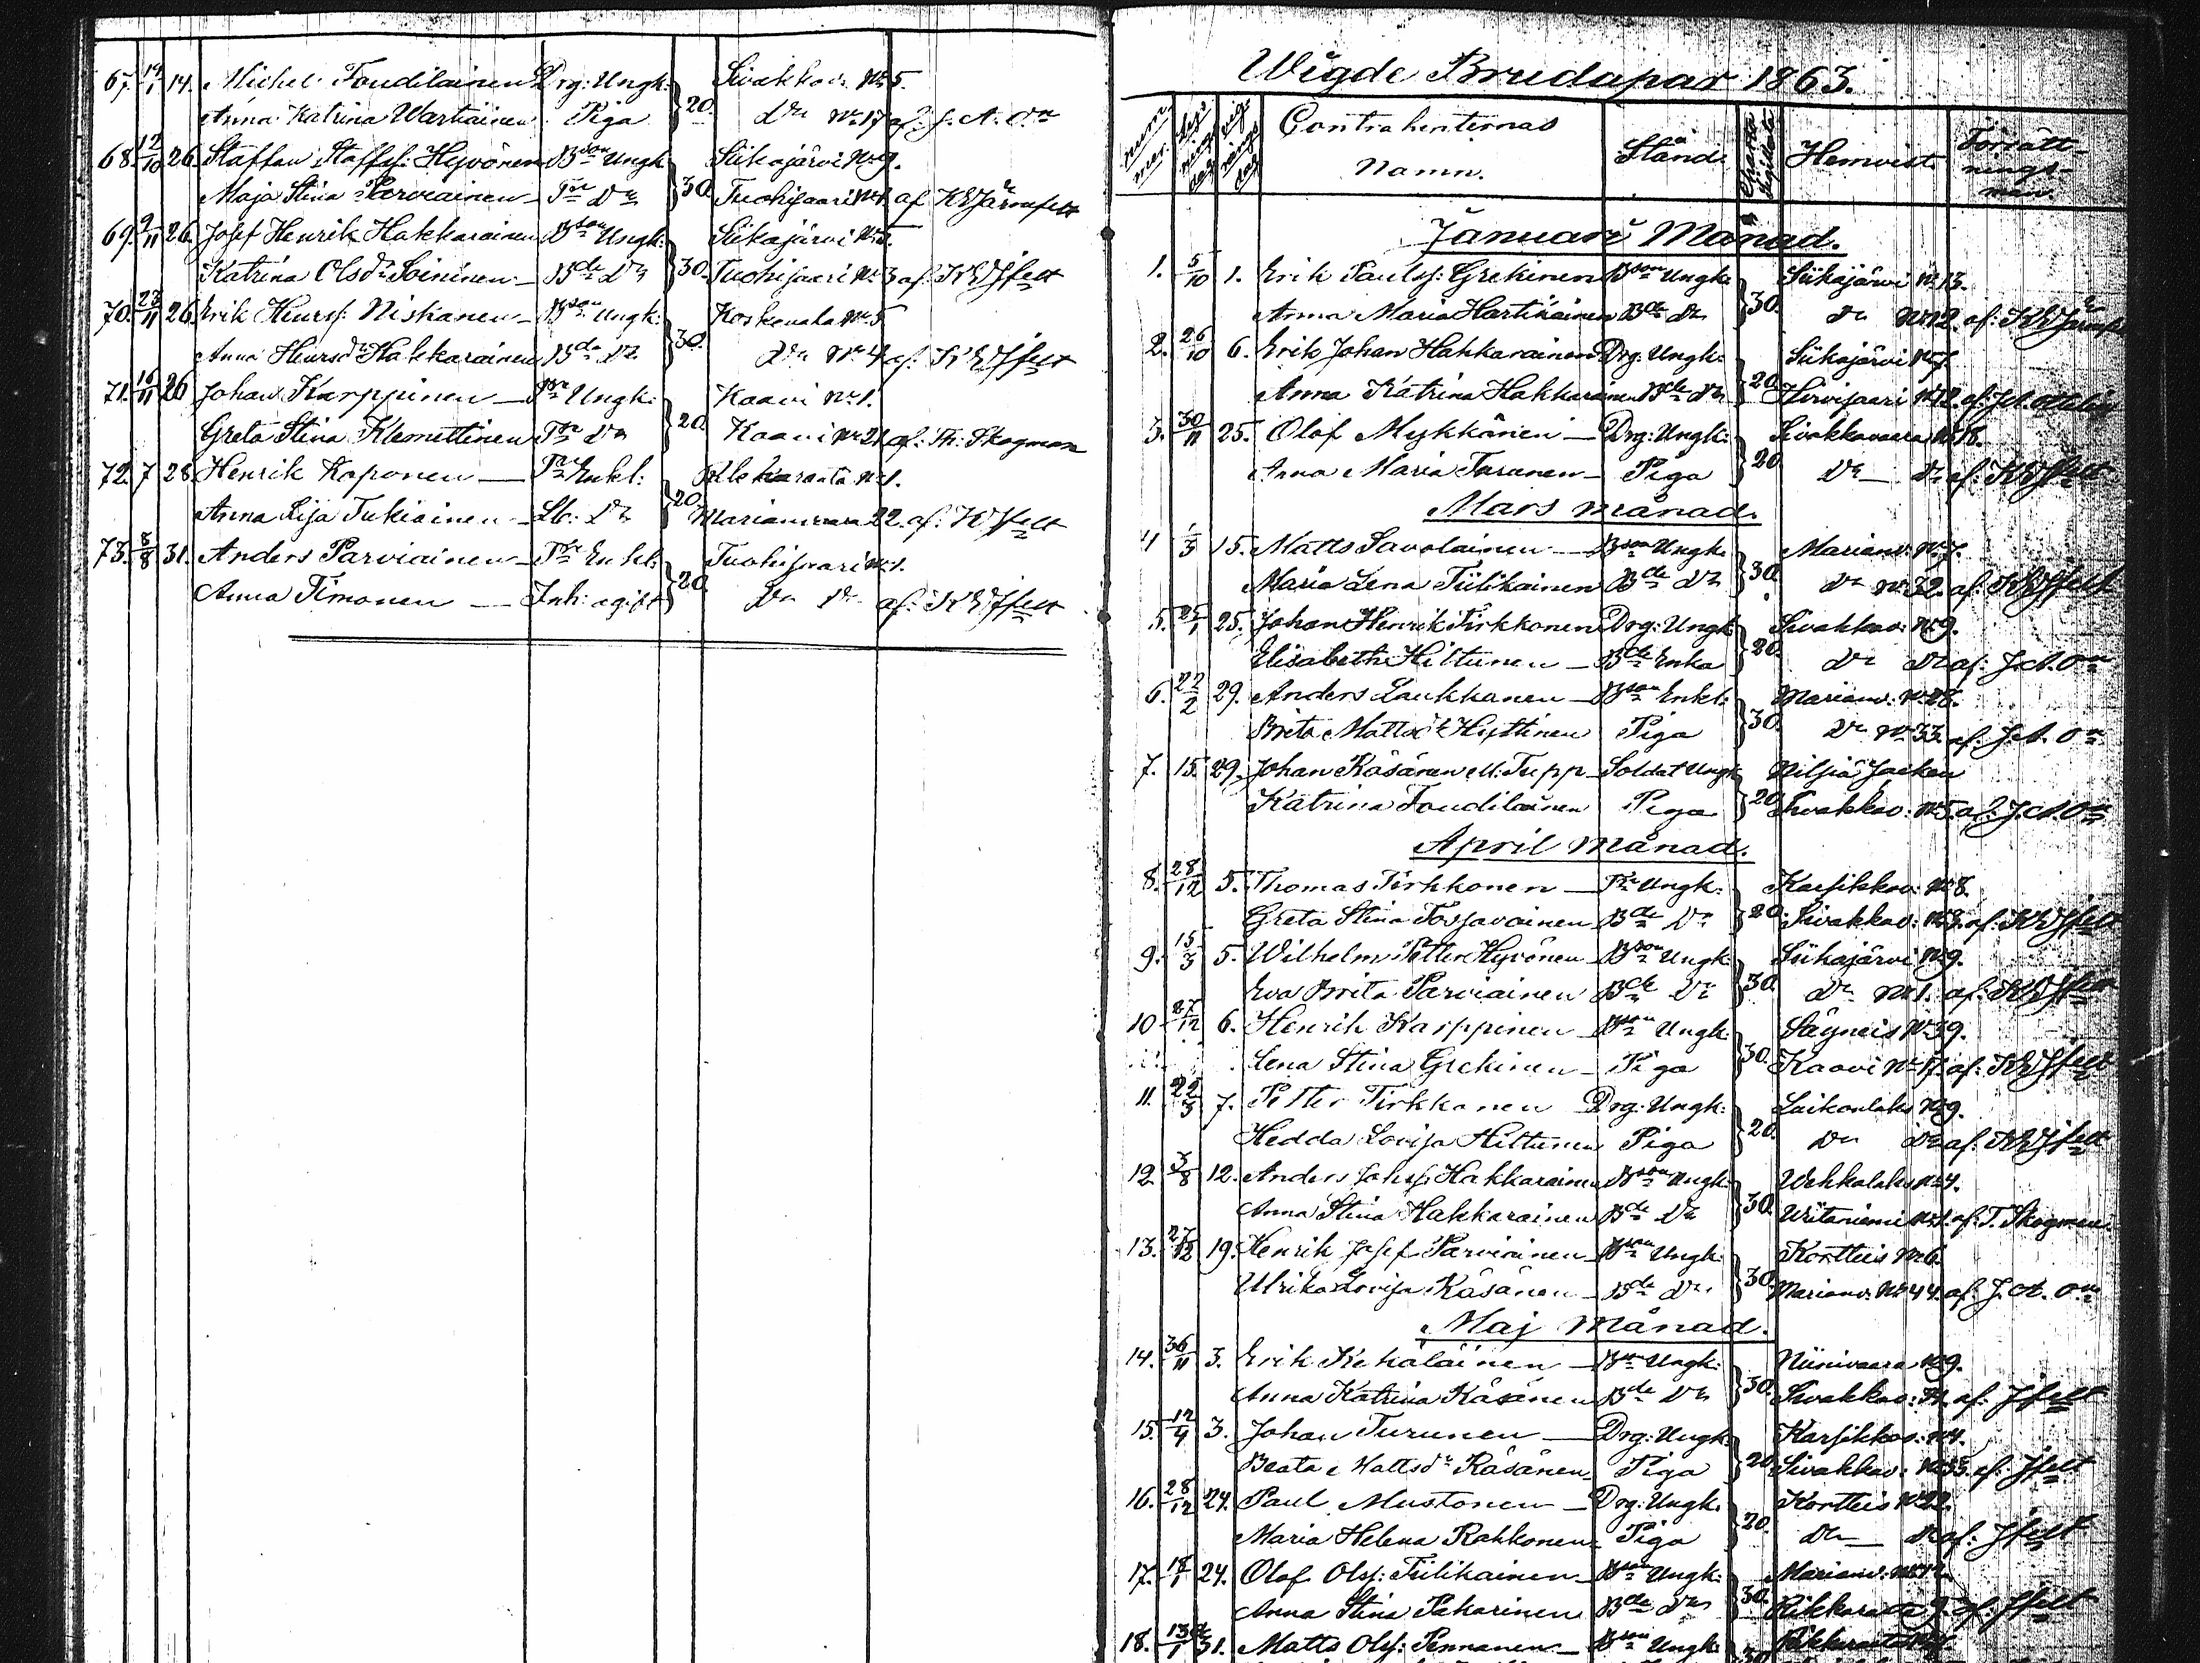 67. 19/1 14. Michel Toudilainen Drg: Ungk: Sivakkav. No 5.
Anna Katrina Wartiäinen Piga 20. Do No 17 af J. A. On
68. 12/10 26. Staffan Staffsf: Hyvönen Bson Ungk Siikajärvi No 9.
Maja Stina Parviainen Tr Do 30. Tuohijaari No 1. af KEJärnefelt
69. 9/11 26. Josef Henrik Hakkarainen Bson Ungk: Siikajärvi No 2.
Katrina Olsdr Soininen Bde Do 30. Tuohijaari No 3 af: KEJfelt
70. 23/11 26. Erik Henrsf: Niskanen Bson Ungk: Koskenala No 5
Anna Henrsdr Hakkarainen Bde Do 30. Do No 4 af: KEJfelt
71. 16/11 26 Johan Karppinen Tr Ungk: Kaavi No 1.
Greta Stina Klemettinen Tr Do 20. Kaavi No 21 af. Th: Skogman
72. 7 28 Henrik Koponen Tr Enkl: No 1.
Anna Lija Tukiainen Lb: Do 20. Marianvaara 22. af: KEJfelt
73. 8/8 31. Anders Parviainen Tr Enkl: Tuohijaari No 1.
Anna Timonen Inh: ogift 20. Do Do af: KEJfelt
Wigde Brudapar 1863.
Contrahenternas Namn. Stånd. Hemvist. Författningsmän.
Januari Månad.
1. 5/10 1. Erik Paulsf: Grekinen Bson Ungk: Siikajärvi No 13.
Anna Maria Hartikainen Bde Do 30. Do No 12. af: KEJärnefe
2. 26/10 6. Erik Johan Hakkarainen Drg: Ungk: Siikajärvi No 7.
Anna Katrina Hakkarainen Bde Do 20. Hirvijaari No 12. af: J.A.
3. 30/11 25. Olof Mykkänen Drg: Ungk: Sivakkavaara No 18.
Anna Maria Turunen Piga 20. Do Do af: KEJfelt
Mars månad.
4 1/3 15. Matts Savolainen Bson Ungk. Marianv: No 7.
Maria Lena Tiilikainen Bde Do 30. Do No 32. af: KEJfelt
5. 25/1 25. Johan Henrik Pirkkonen Drg: Ungk: Sivakkav: No 9.
Elisabeth Hiltunen Bde Enka 20. Do Do af: J.A.On
6. 22/2 29. Anders Laukkanen Bson Enkl: Marianv: No 28.
Brita Mattsdr Hyttinen Piga 30. Do No 33. af: J.A. On
7. 15. 29. Johan Räsänen M: Trupp Soldat Ungk Nilsiä Socken
Katrina Toudilainen Piga 20. Sivakkav: No 5. af: J.A. On
April månad.
8. 28/12 5. Thomas Pirkkonen Tr Ungk: Karsikkov: No 8.
Greta Stina Tossavainen Bde Do 20. Sivakkav: No 3. af. KEJfelt
9. 15/3 5. Wilhelm Petter Hyvönen Bson Ungk. Siikajärvi No 9.
Eva Brita Parviainen Bde Do 30. Do No 1. af: KEJfelt
10 27/12 6. Henrik Karppinen Bson Ungk: Säyneis No 39.
Lena Stina Grekinen Piga 30. Kaavi No 17. af: KEJfelt
11. 22/3 7. Petter Pirkkonen Drg: Ungk: Laikonlaks No 9.
Hedda Lovisa Hiltunen Piga 20. Do Do af: KEJfelt
12. 3/8 12. Anders Johsf: Hakkarainen Bson Ungk: Wehkalaks No 4.
Anna Stina Hakkarainen Bde Do 30. Witaniemi No 1. af: T. Skogman
13. 27/12 19. Henrik Josef Parviainen Bson Ungk: Kortteis No 6.
Ulrika Lovisa Räsänen Bde Do 30. Marianv. No 44. af: J. A. On
Maj månad.
14. 30/11 3. Erik Kekäläinen Bson Ungk. Niinivaara No 9.
Anna Katrina Räsänen Bde Do 30. Sivakkav: af: Jfelt
15. 12/4 3. Johan Turunen Drg: Ungk: Karsikkov: No 4.
Beata Mattsdr Räsänen Piga 20. Sivakkav: No 33. af: Jfelt
16. 28/12 24. Paul Mustonen Drg: Ungk. Kortteis No 22.
Maria Helena Rokkonen Piga 20. Do Do af: Jfelt
17. 18/1 24. Olof Olsf: Tiilikainen Bson Ungk: Marianv. No 12.
Anna Stina Pakarinen Bde Do 30. af: Jfelt
18. 31. Matts Olsf: Pennanen Bson Ungk: